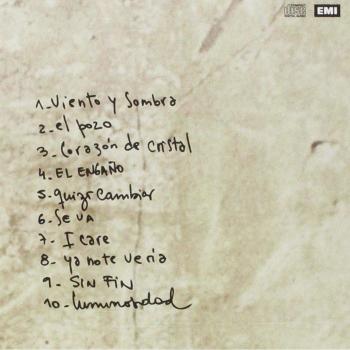 COMPACT disc DIGITAL AUDIO
EMI
1- Viento y Sombra
2- el pozo
3- Corazón de cristal
4- EL ENGAÑO
5- quizr cambiar
6- Se va
7- I care
8- ya note veria
9- SIN FIN
10- luminosidad